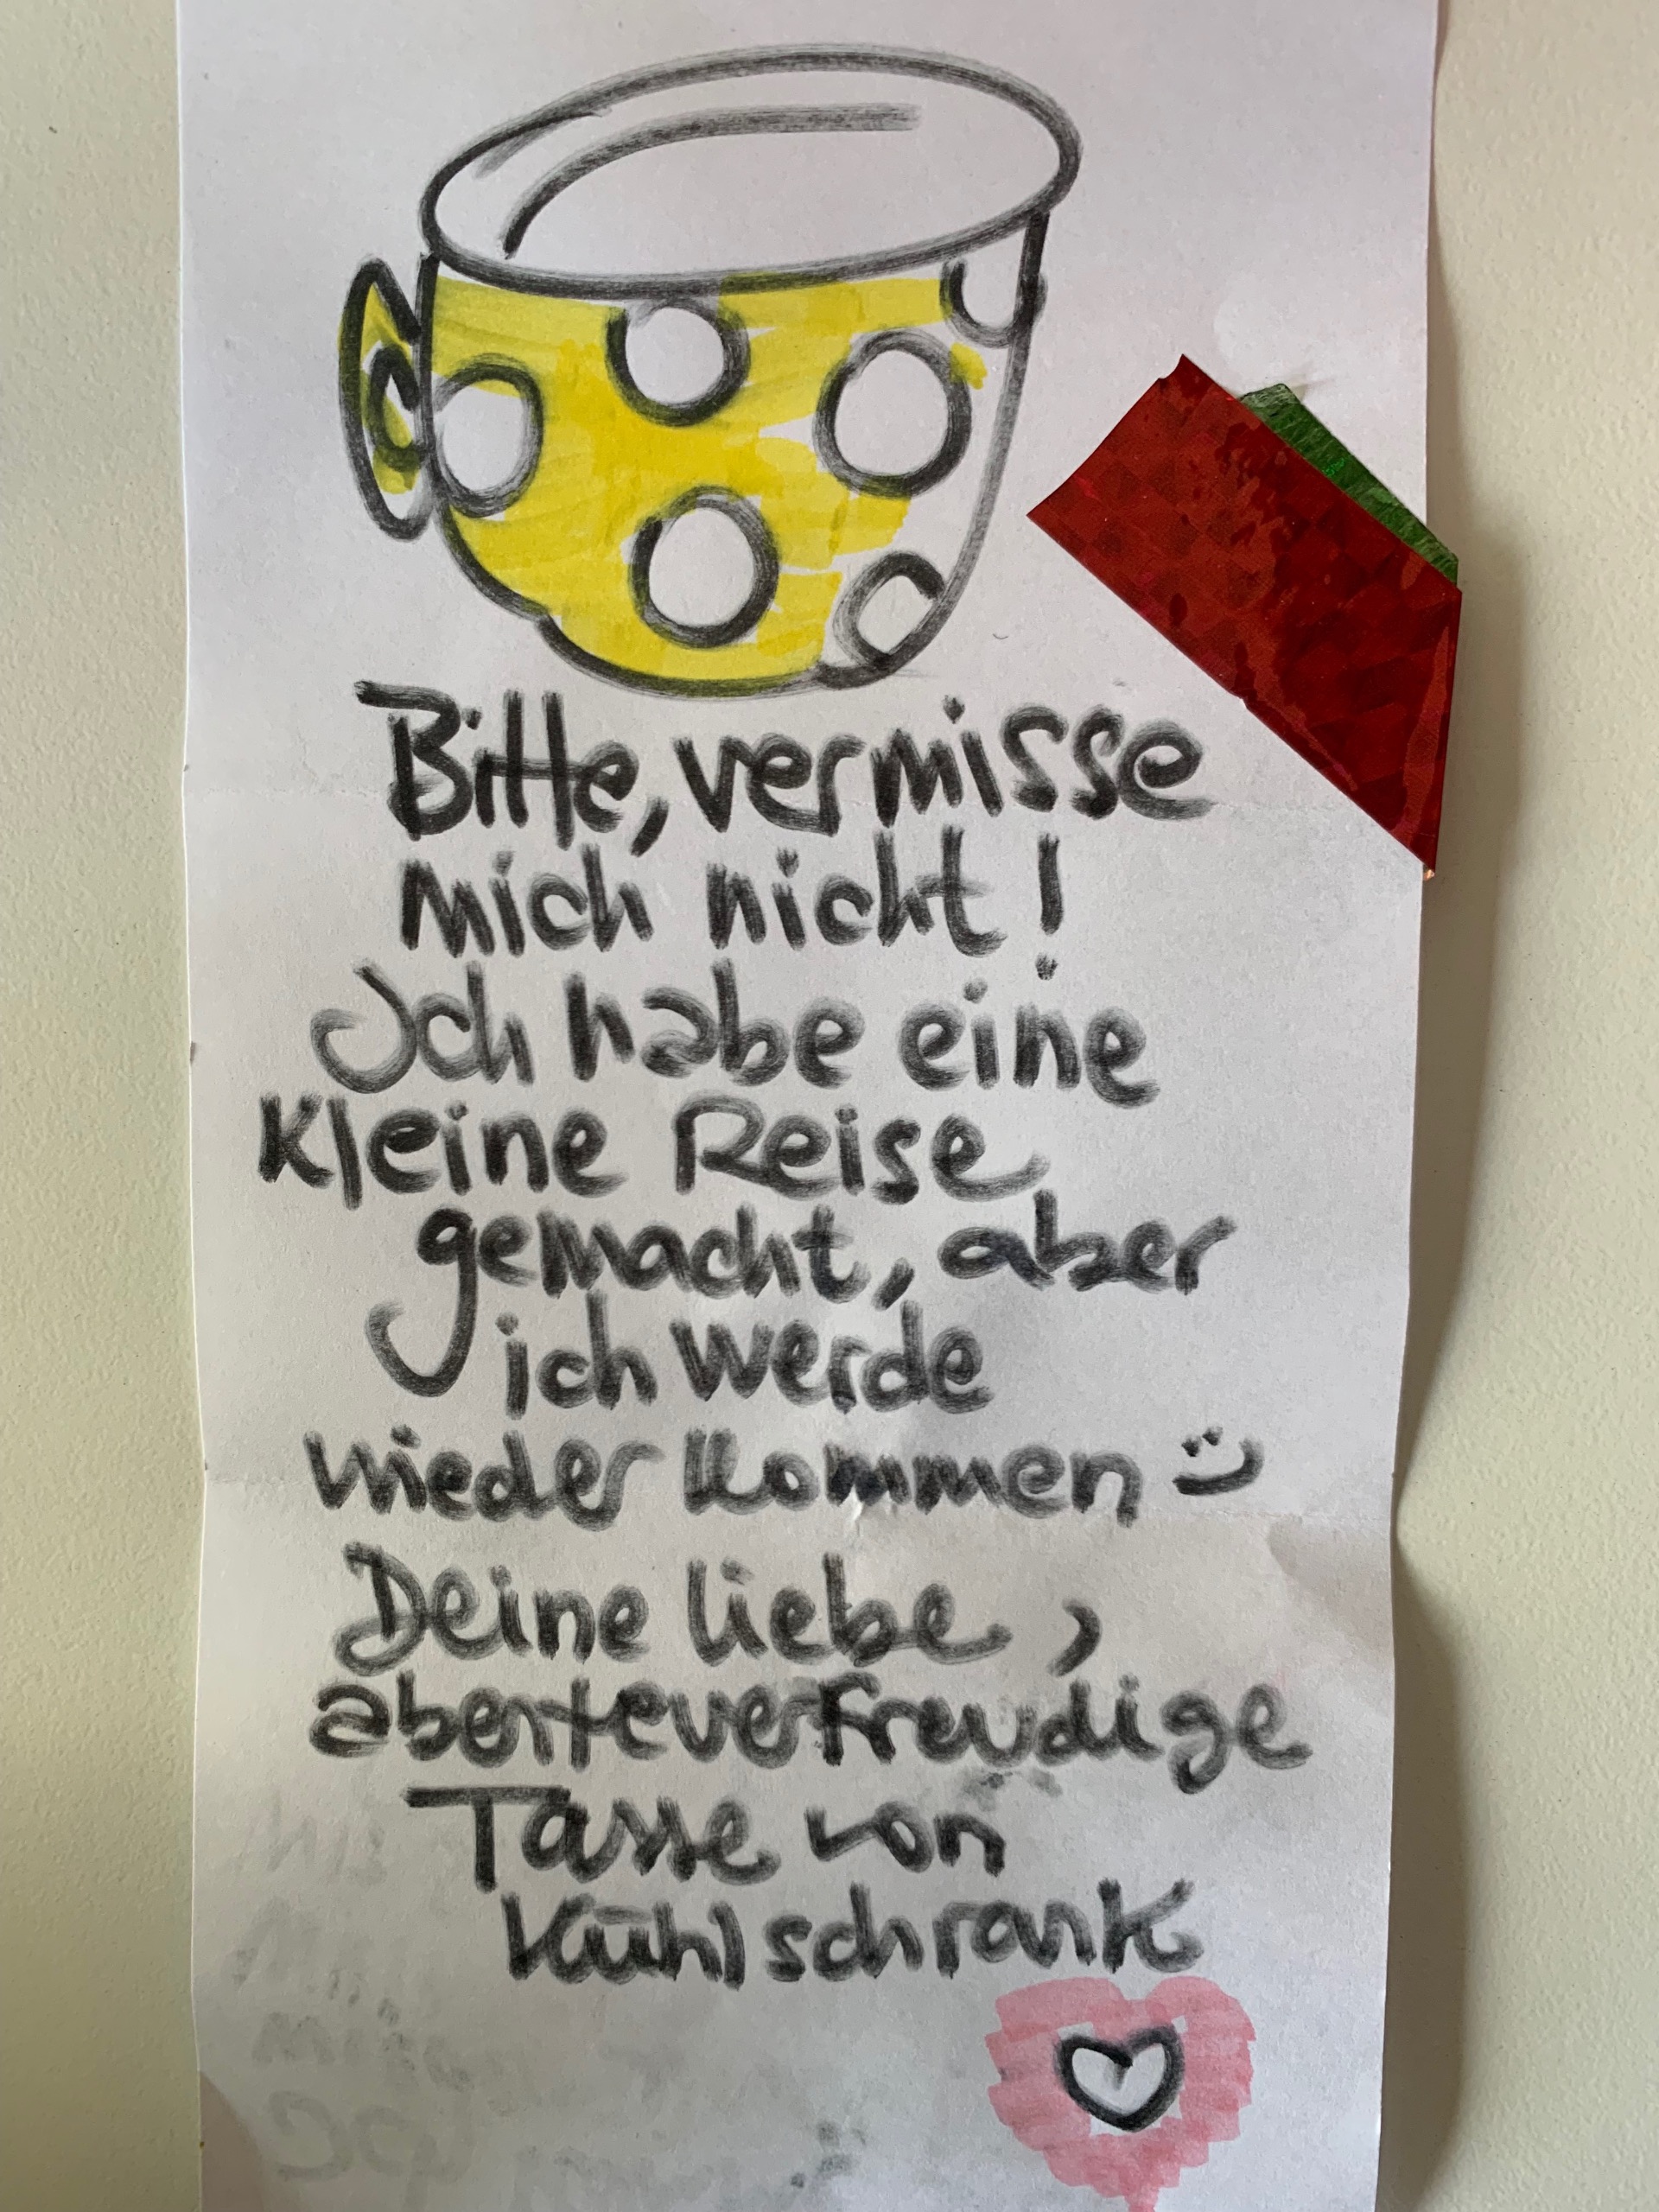 Bitte, vermisse
mich nicht!
Ich habe eine
kleine Reise
gemacht, aber
ich werde
wieder kommen :)
Deine liebe,
abenteuerfreudige
Tasse von
Kühlschrank